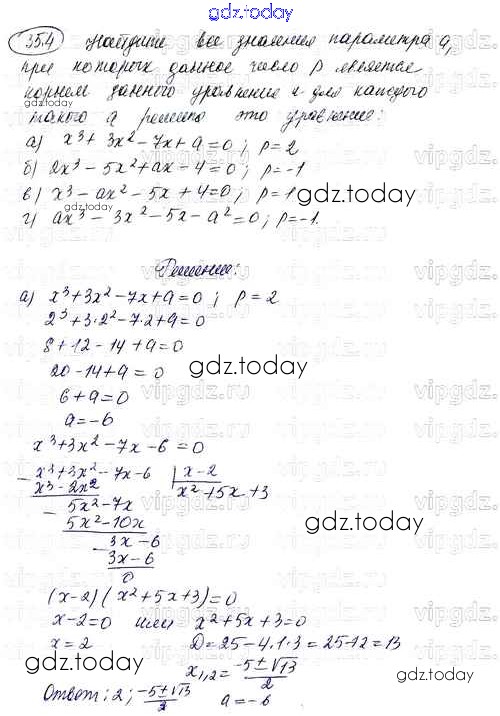 gdz.today
35.4 Найдите все значения параметра a,
при которых данное число p является
корнем данного уравнения и для каждого
такого a решите это уравнение:
а) x³ + 3x² - 7x + a = 0; p = 2
б) 2x³ - 5x² + ax - 4 = 0; p = -1
в) x³ - ax² - 5x + 4 = 0; p = 1
г) ax³ - 3x² - 5x - a² = 0; p = -1.
gdz.today
Решение:
а) x³ + 3x² - 7x + a = 0; p = 2
2³ + 3·2² - 7·2 + a = 0
8 + 12 - 14 + a = 0
20 - 14 + a = 0
gdz.today
6 + a = 0
a = -6
x³ + 3x² - 7x - 6 = 0
- x³ + 3x² - 7x - 6 | x - 2
x³ - 2x² x² + 5x + 3
- 5x² - 7x
5x² - 10x
gdz.today
- 3x - 6
3x - 6
0
(x - 2)(x² + 5x + 3) = 0
x - 2 = 0 или x² + 5x + 3 = 0
x = 2 D = 25 - 4·1·3 = 25-12 = 13
gdz.today
x₁,₂ = -5 ± √13 / 2
Ответ: 2; -5 ± √13 / 2 a = -6
gdz.today